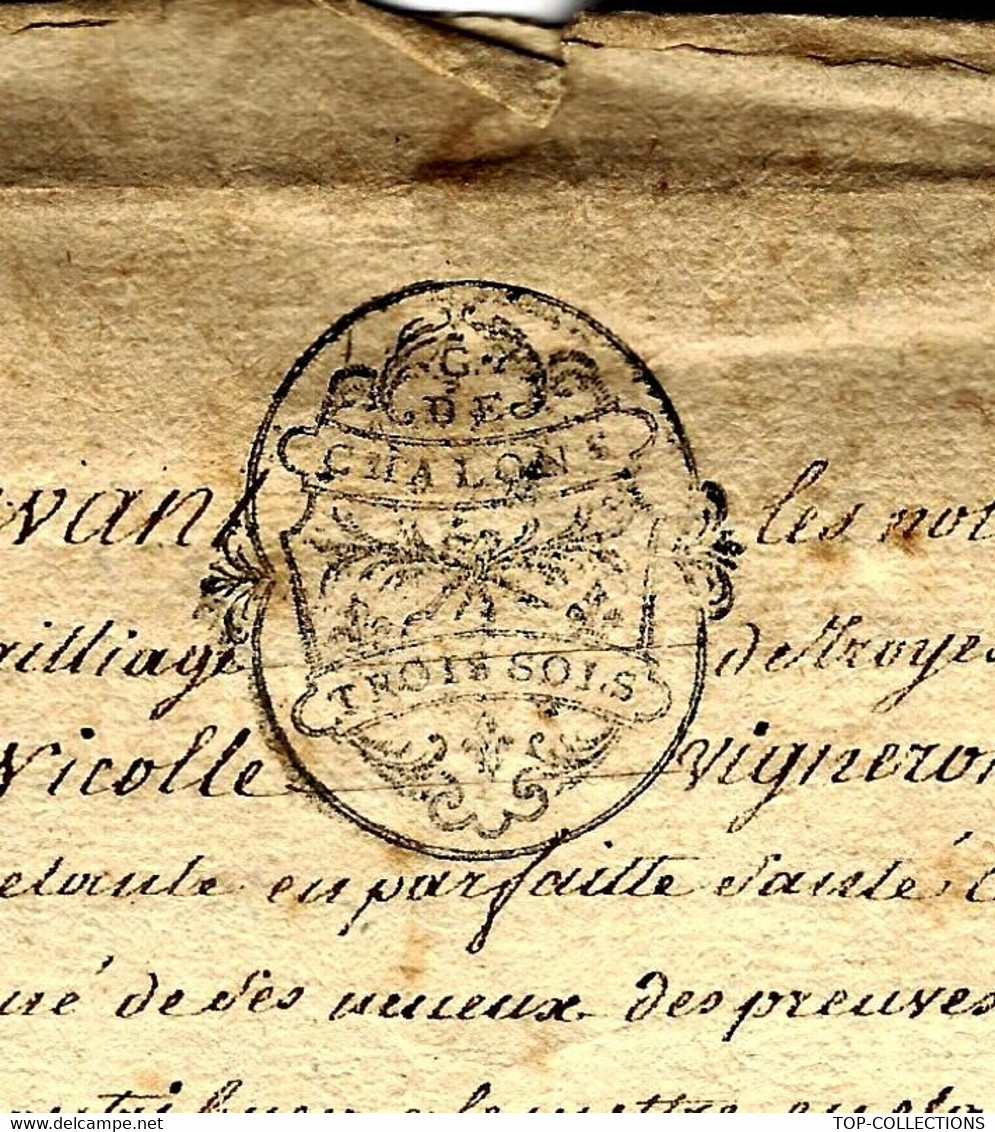 G.
DE
CHALONS
TROIS SOLS
evant les not
ailliage de Troyes
Nicolle vigneron
etante en parfaitte santé
de ses des preuves
TOP-COLLECTIONS